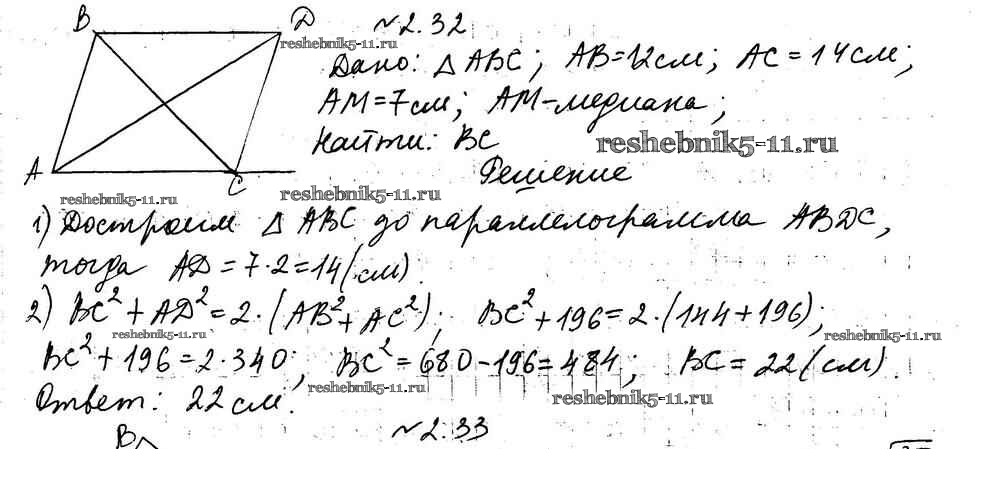 B D №2.32
reshebnik5-11.ru
Дано: △ ABC; AB=12см; AC=14см;
AM=7см; AM-медиана;
Найти: BC
reshebnik5-11.ru
A C Решение
reshebnik5-11.ru reshebnik5-11.ru
1) Достроим △ ABC до параллелограмма ABDC,
тогда AD=7·2=14(см)
2) BC²+AD²=2·(AB²+AC²); BC²+196=2·(144+196);
reshebnik5-11.ru reshebnik5-11.ru
BC²+196=2·340; BC²=680-196=484; BC=22(см).
reshebnik5-11.ru reshebnik5-11.ru
Ответ: 22см.
B №2.33